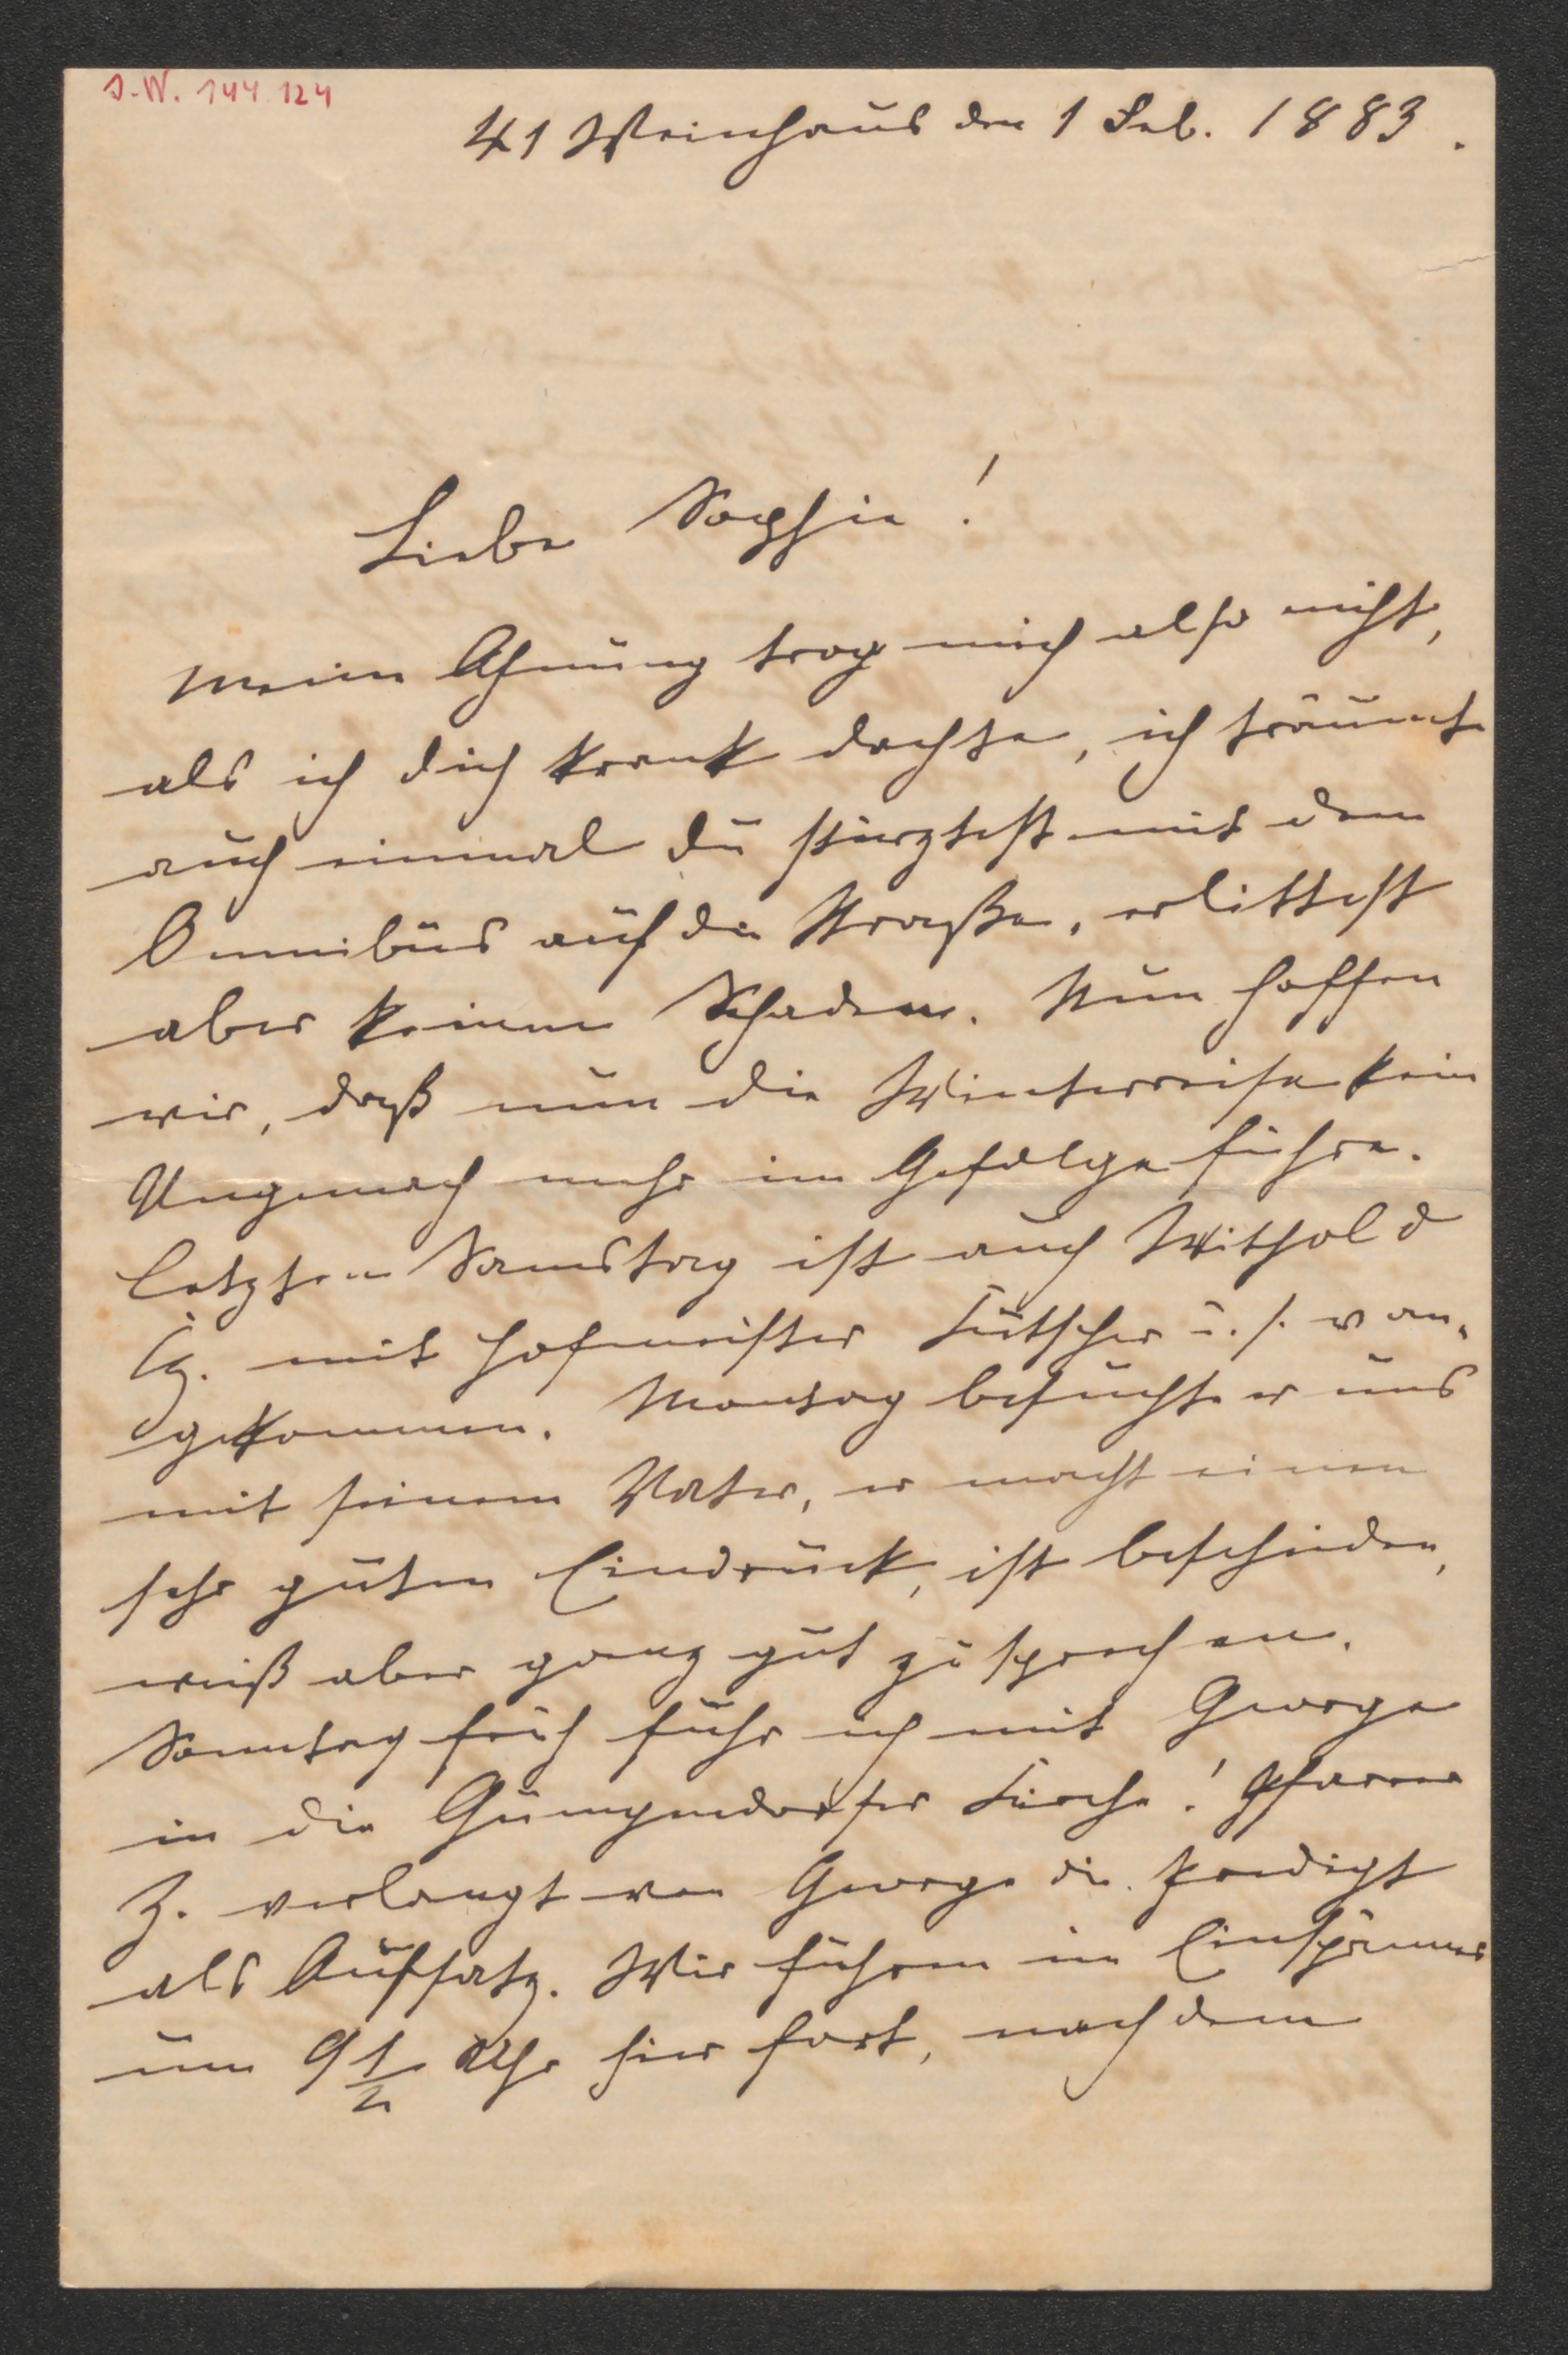 J.N. 144.124
41 Weinhaus den 1 Feb. 1883.
Liebe Sophie!
Meine Ahnung trog mich also nicht,
als ich dich krank dachte, ich träumte
auch einmal du stürztest mit dem
Omnibus auf die Straße, erlittest
aber keinen Schaden. Nun hoffen
wir, daß nun die Winterreise kein
Ungemach mehr im Gefolge führe.
Letzten Samstag ist auch Withold
Cz. mit Hofmeister Kutscher u. s. w an-
gekommen. Montag besuchte er uns
mit seinem Vater, er macht einen
sehr guten Eindruck, ist bescheiden,
weiß aber ganz gut zu sprechen.
Sonntag früh fuhr ich mit George
in die Gumpendorfer Kirche! Pfarrer
Z. verlangt von George die Predigt
als Aufsatz. Wir fuhren im Einspänner
um 9 1/2 Uhr hier fort, nachdem